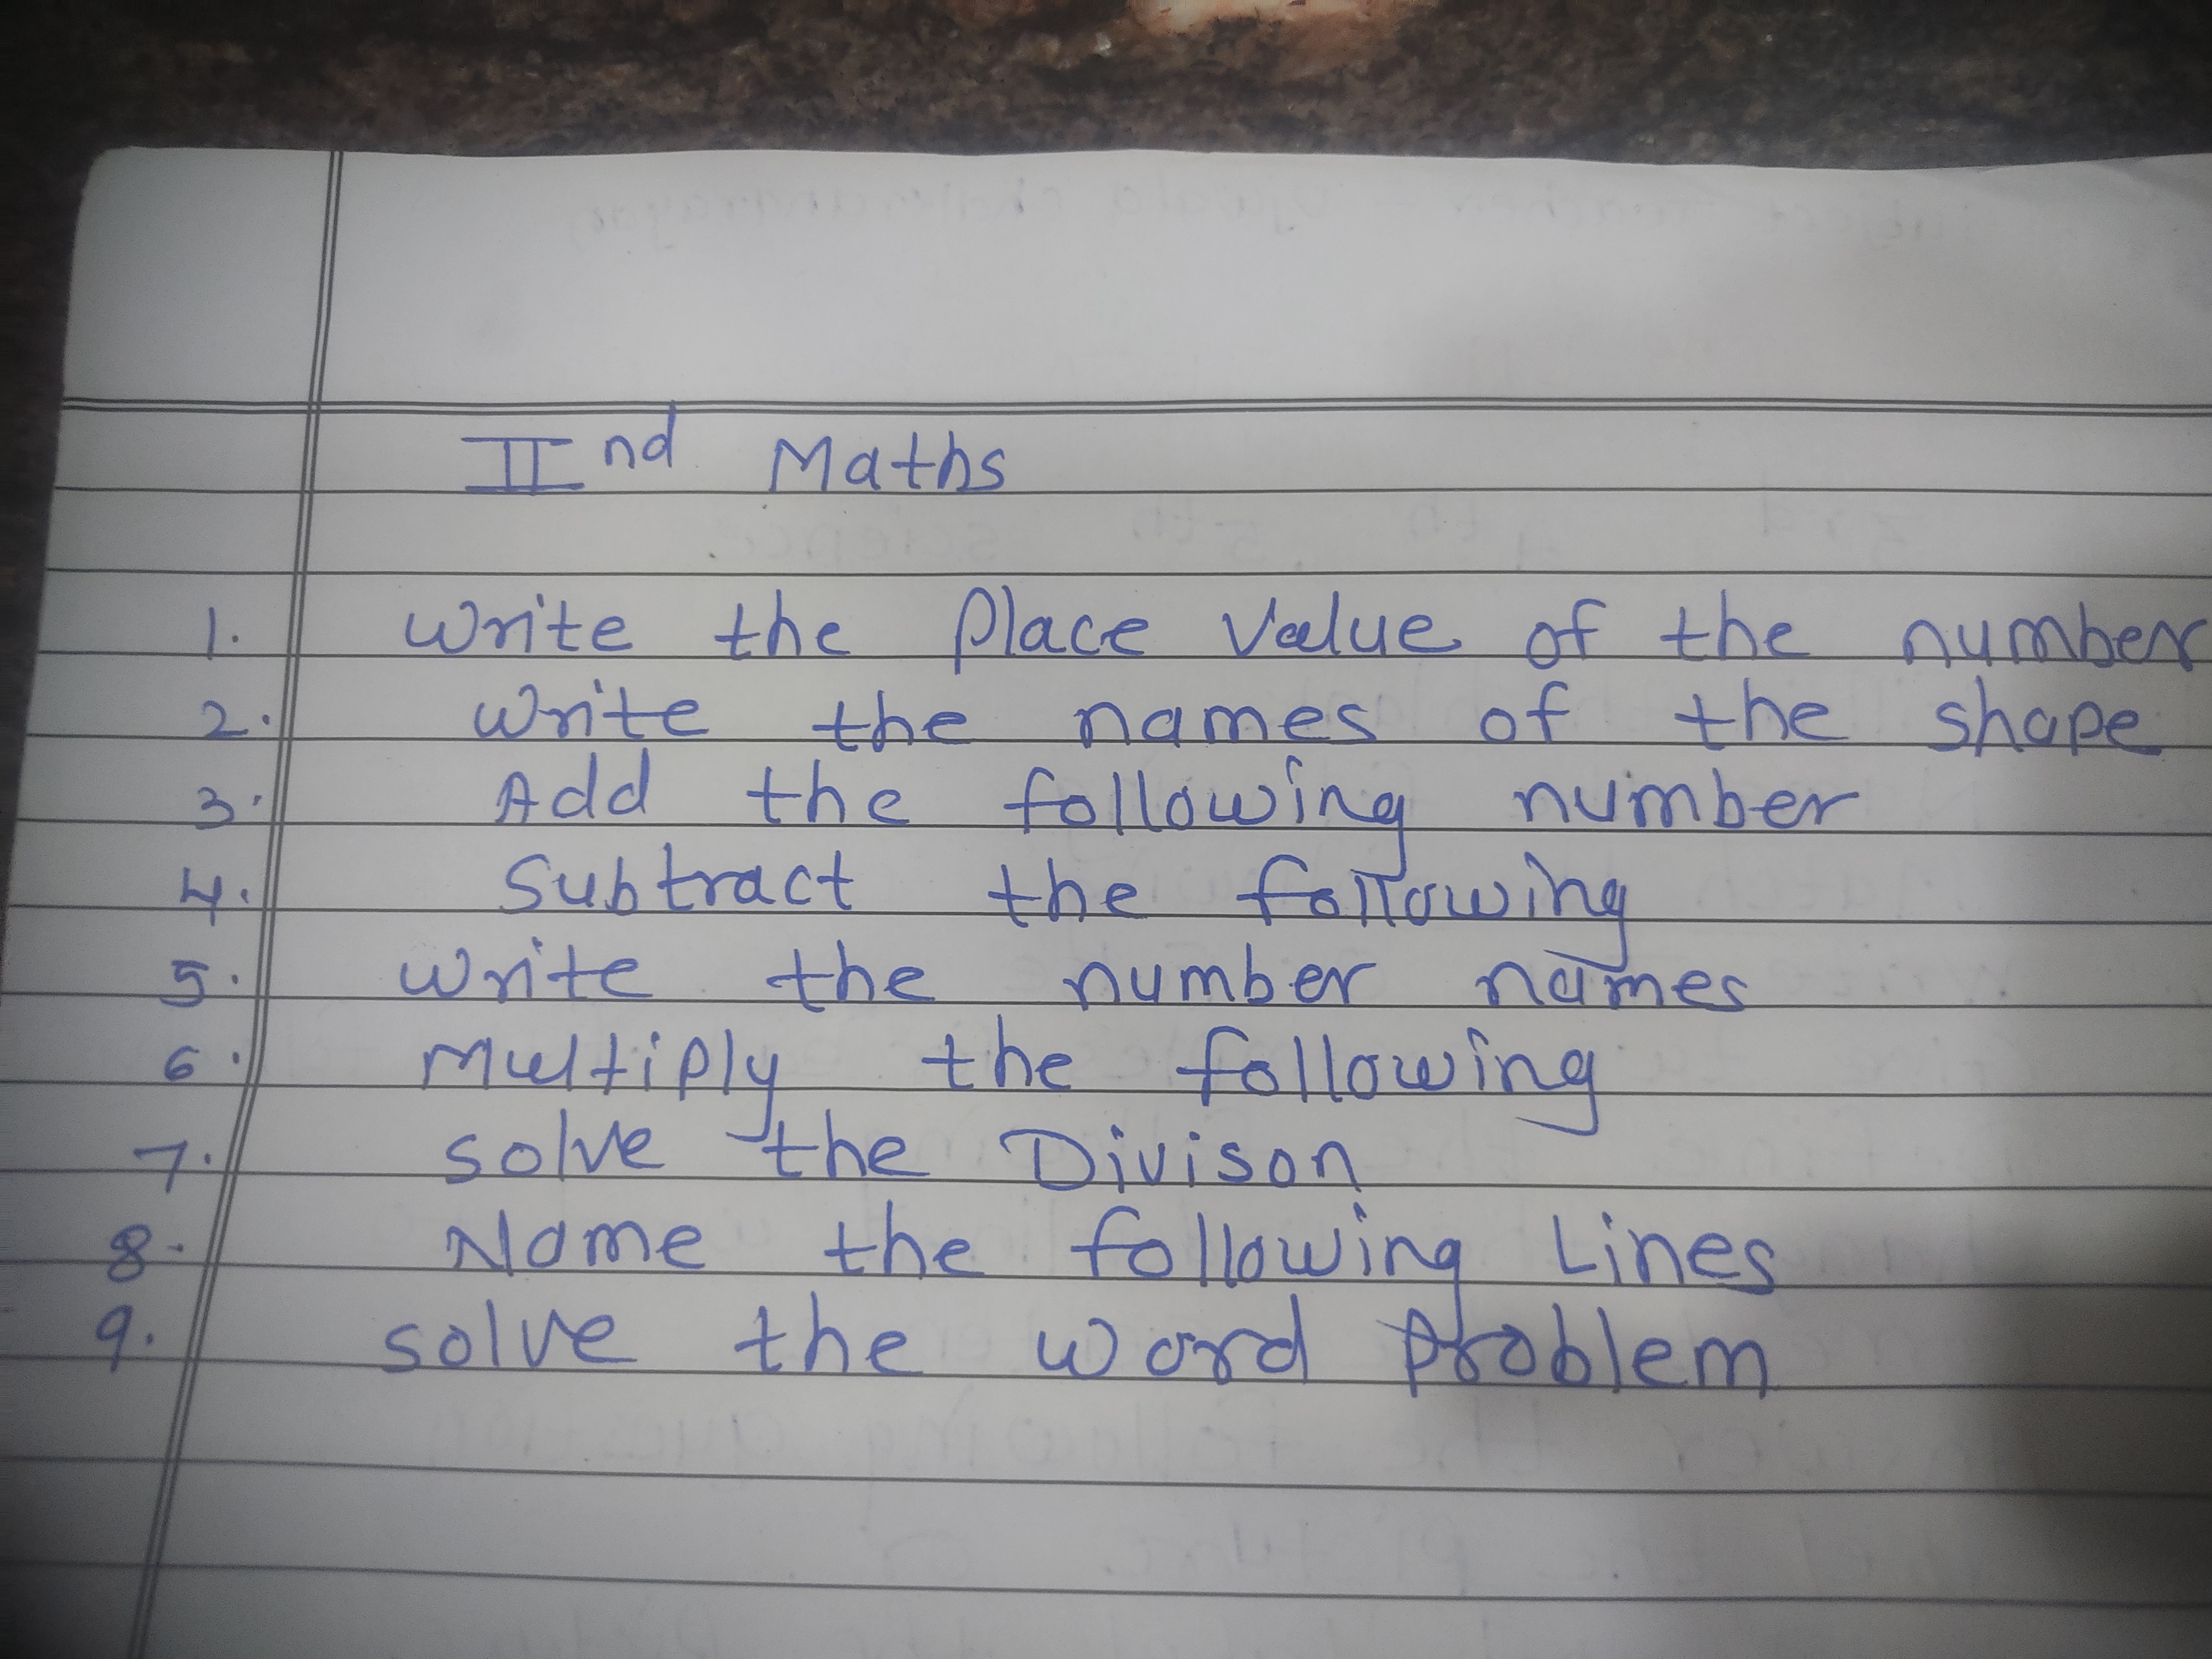 IInd Maths
1. Write the Place Value of the number
2. Write the names of the shape
3. Add the following number
4. Subtract the following
5. Write the number names
6. Multiply the following
7. solve the Divison
8. Name the following Lines
9. solve the word problem